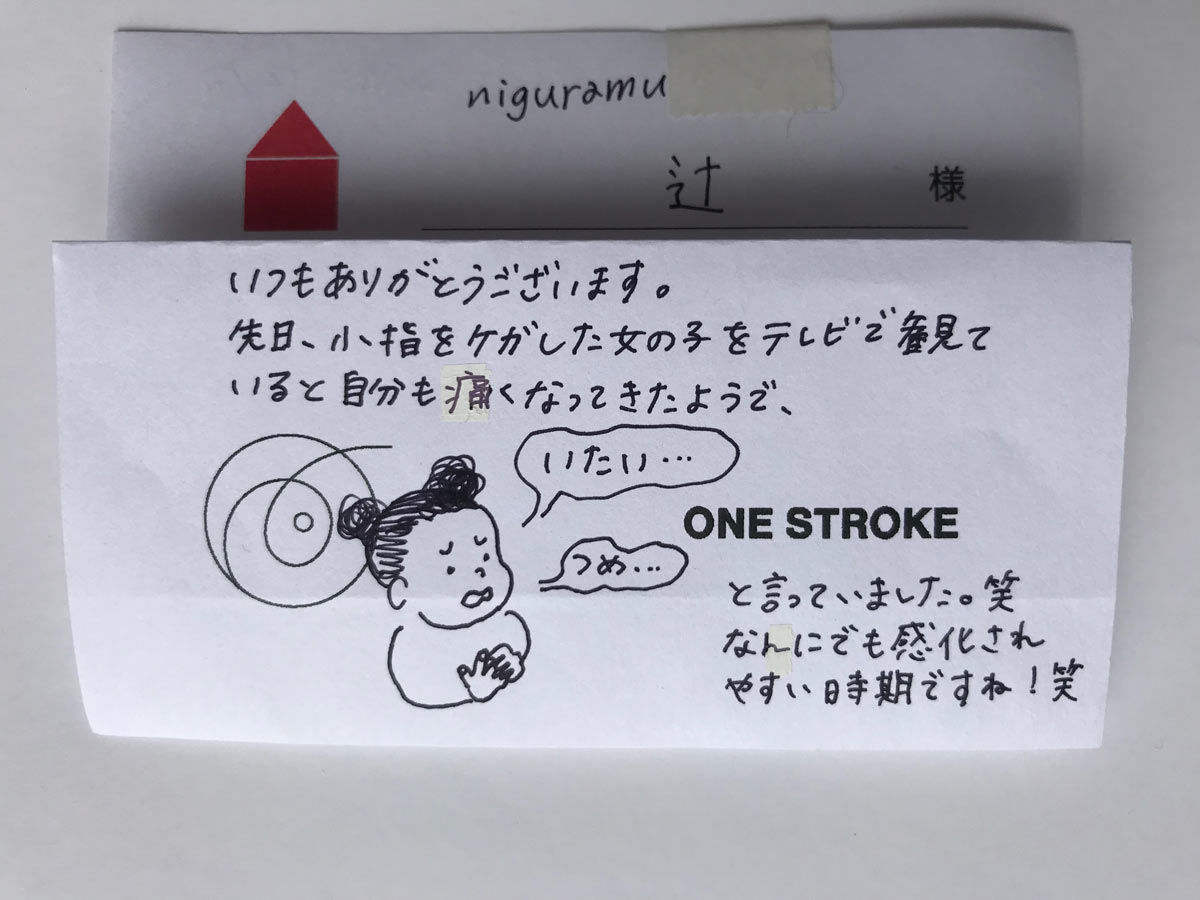 niguramu
辻 様
いつもありがとうございます。
先日、小指をケガした女の子をテレビで観て
いると自分も痛くなってきたようで、
いたい…
つめ…
ONE STROKE
と言っていました。笑
なんにでも感化され
やすい時期ですね！笑